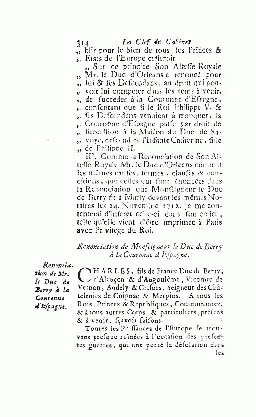 314 La Clef du Cabinet
„ blir pour le bien de tous les Princes &
„ Etats de l'Europe
„ Sur ce principe Son Altesse Royale
„ Mr. le Duc d'Orleans a renoncé pour
„ lui & ses Descendans, au droit qui
„ voit lui competer dans les tems à venir,
„ de succeder à la Couronne d'Espagne,
„ consentant que si le Roi Philippe V. &
„ ses Descendans venoient à manquer, la
„ Couronne d'Espagne passe par droit de
„ succession à la Maison du Duc de Sa-
„ voye, descendu de l'Infante Catherine, fille
„ de Philippe II.
II. Comme la Renonciation de Son Al-
tesse Royale Mr. le Duc d'Orleans contient
les mêmes termes, clauses & con-
ditions, que celles qui sont énoncées dans
la Renonciation que Monseigneur le Duc
de Berry fit à Marly devant les mêmes No-
taires le 24. Novembre 1712. je me con-
tenterai d'inserer celle-ci dans son entier,
telle qu'elle vient d'être imprimée à Paris
avec Privilege du Roi.
Renonciation de Monseigneur le Duc de Berry
à la Couronne d'Espagne.
Renoncia-
tion de Mr.
le Duc de
Berry à la
Couronne
d'Espagne.
CHARLES, fils de France Duc de Berry,
d'Alençon & d'Angoulême, Vicomte de
Vernon, Andely & Gisors, Seigneur des Châ-
telenies de Coignac & Merpins. A tous les
Rois, Princes & Républiques, Communautez,
& à tous autres Corps, & particuliers, presens
& à venir, sçavoir faisons.
Toutes les Puissances de l'Europe se trou-
vant presque ruinées à l'occasion des presen-
tes guerres, qui ont porté la desolation dans
les